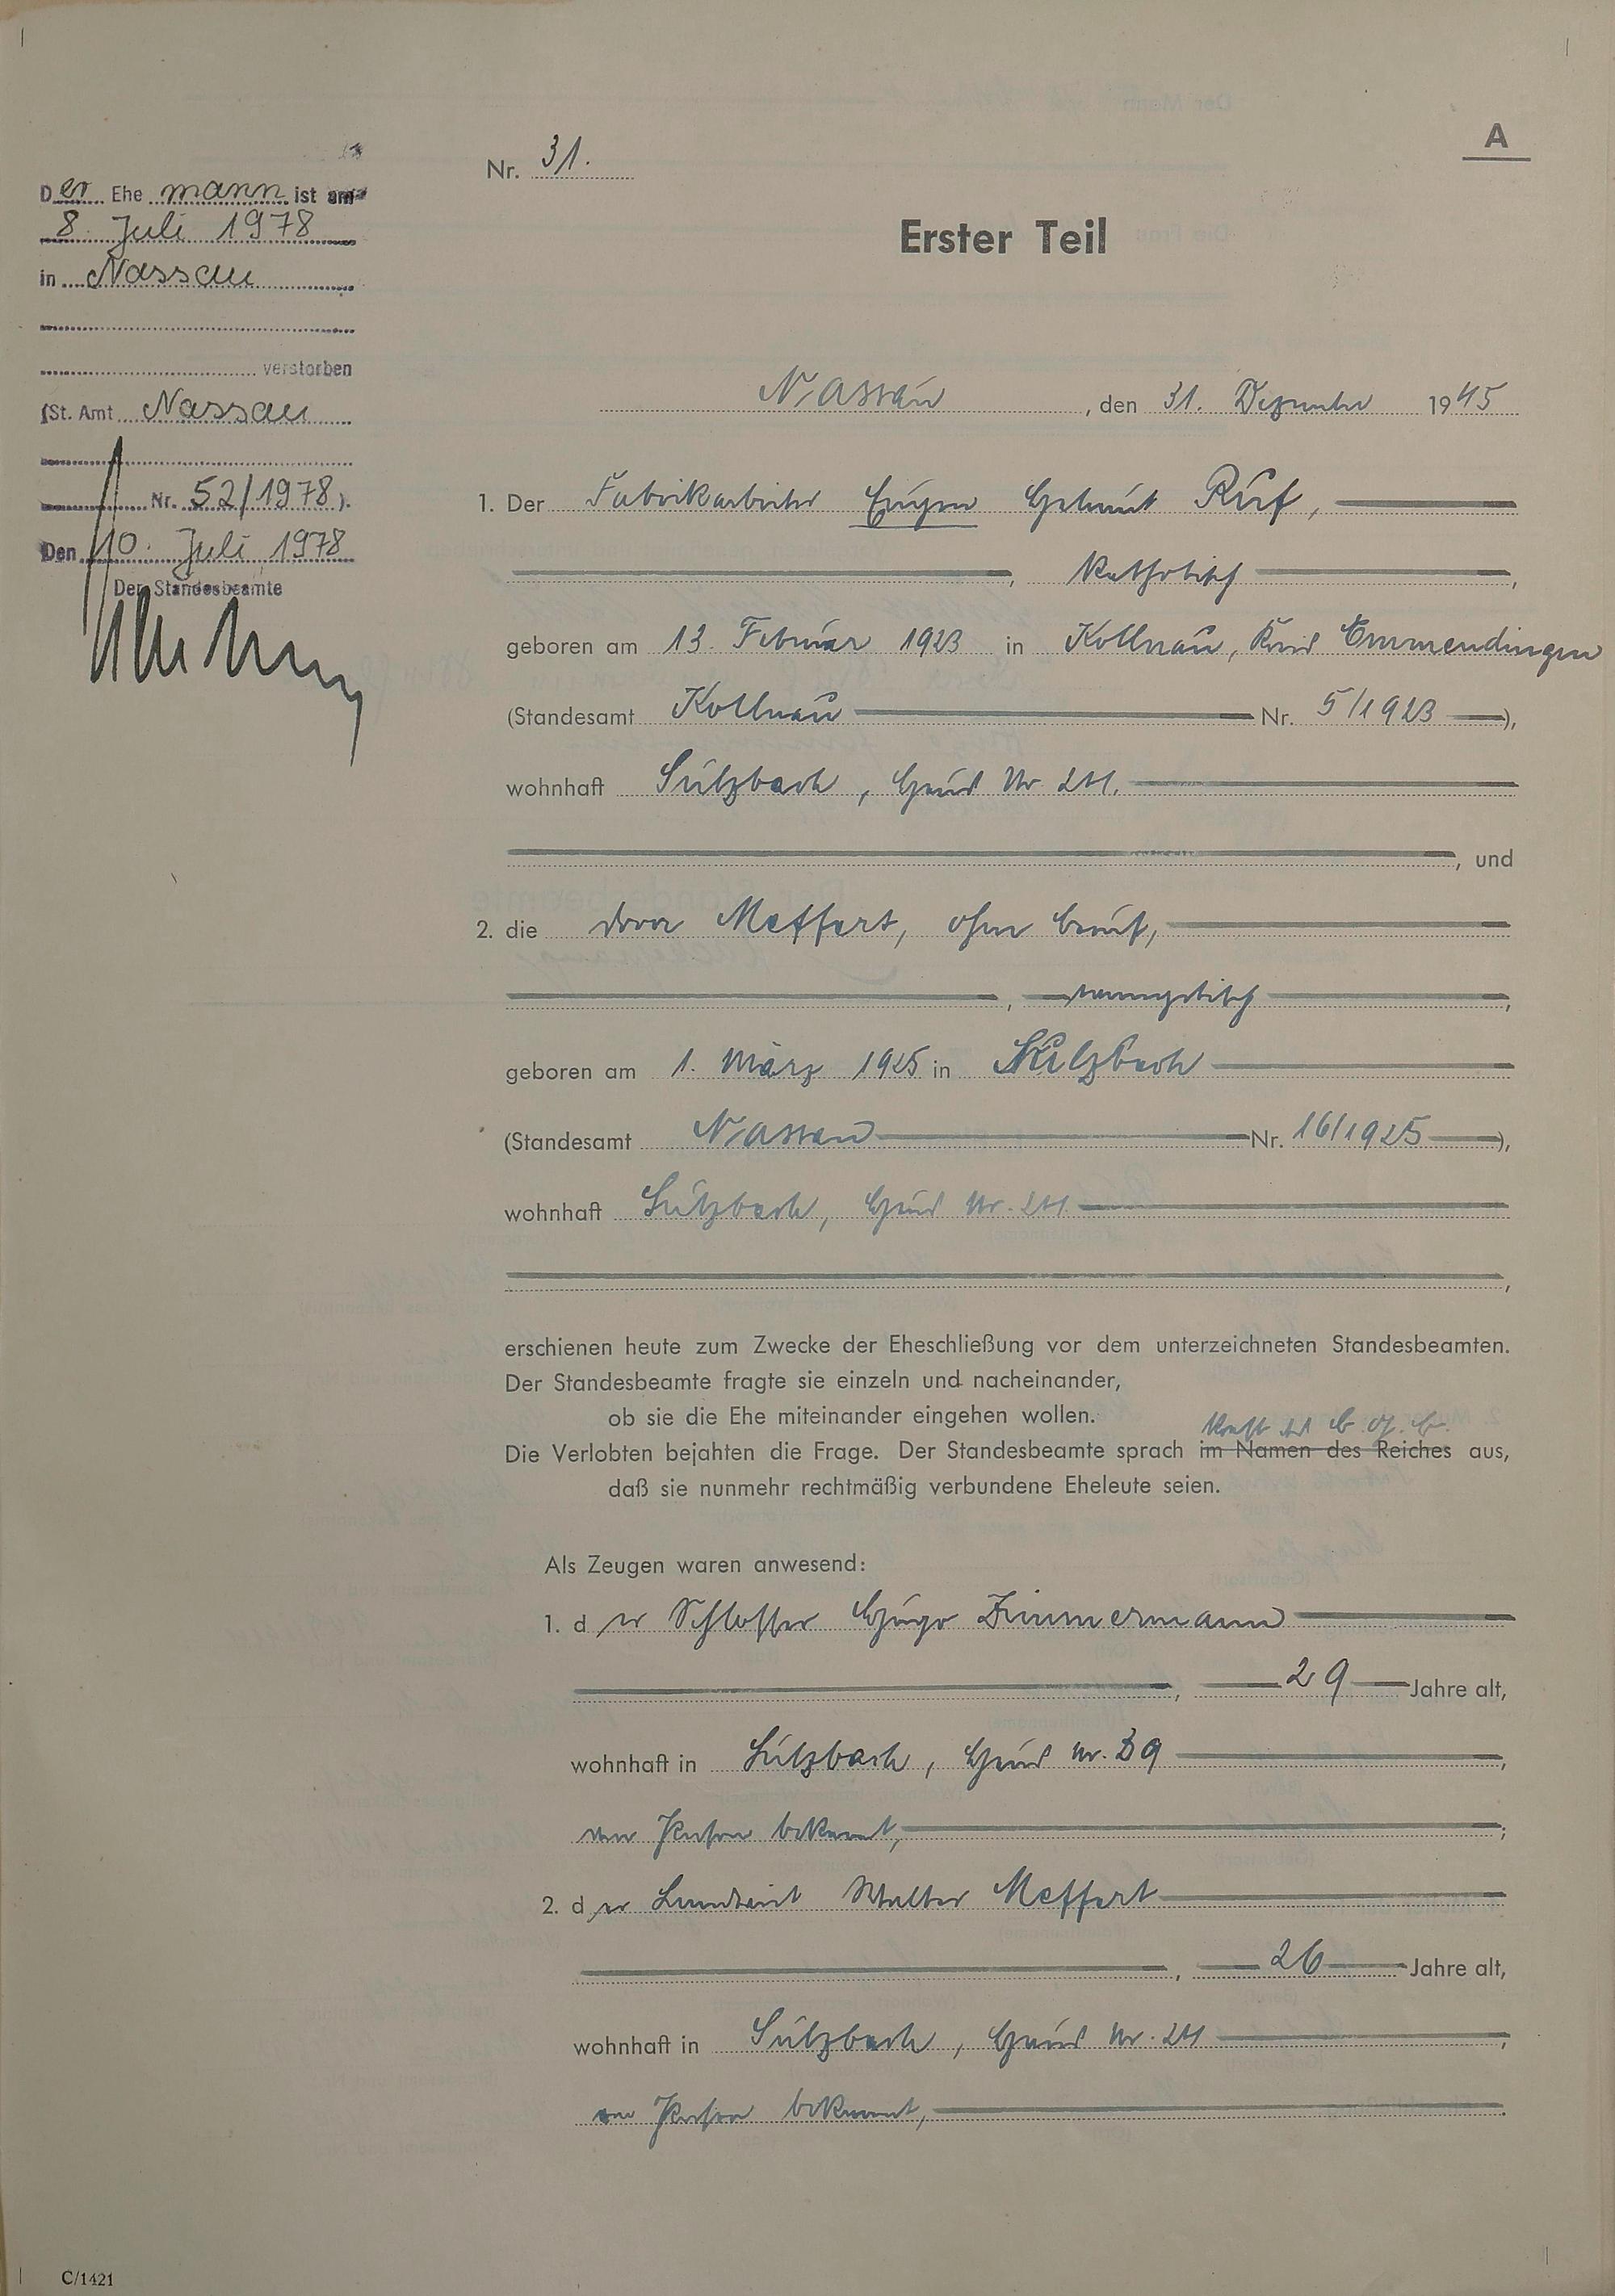 A
Nr. 31.
Erster Teil
Der Ehemann ist am
8. Juli 1978
in Nassau
verstorben
(St. Amt Nassau
Nr. 52/1978).
Den 10. Juli 1978
Der Standesbeamte
Nassau, den 31. Dezember 1945
1. Der Fabrikarbeiter Eugen Helmut Ruf,
, katholisch,
geboren am 13. Februar 1923 in Kollnau, Kreis Emmendingen
(Standesamt Kollnau Nr. 5/1923),
wohnhaft Sulzbach, Haus Nr.
, und
2. die Dora Meffert, ohne Beruf,
, evangelisch,
geboren am 1. März 1925 in Sulzbach
(Standesamt Nassau Nr. 16/1925),
wohnhaft Sulzbach, Haus Nr.
,
erschienen heute zum Zwecke der Eheschließung vor dem unterzeichneten Standesbeamten.
Der Standesbeamte fragte sie einzeln und nacheinander,
ob sie die Ehe miteinander eingehen wollen.
kraft des B. G. B.
Die Verlobten bejahten die Frage. Der Standesbeamte sprach im Namen des Reiches aus,
daß sie nunmehr rechtmäßig verbundene Eheleute seien.
Als Zeugen waren anwesend:
1. der Schlosser Hugo Zimmermann
, 29 Jahre alt,
wohnhaft in Sulzbach, Haus Nr. 39,
von Person bekannt,;
2. der Landwirt Walter Meffert
, 26 Jahre alt,
wohnhaft in Sulzbach, Haus Nr.,
von Person bekannt,.
C/1421